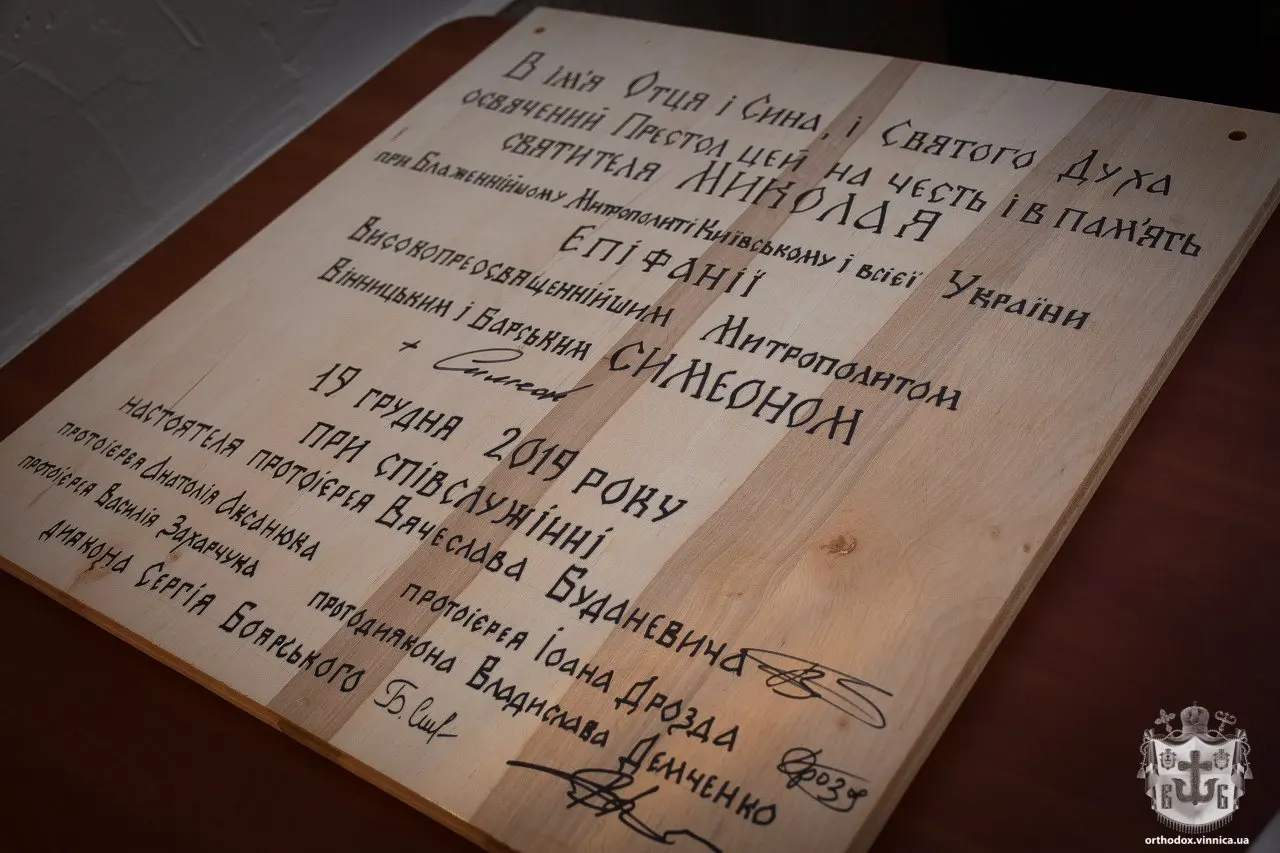 В ім'я Отця і Сина, і Святого Духа
освячений Престол цей на честь і в пам'ять
святителя МИКОЛАЯ
при Блаженнійшому Митрополиті Київському і всієї України
ЕПІФАНІЇ
Високопреосвященнійшим Митрополитом
Вінницьким і Барським СИМЕОНОМ
+ Симеон
19 грудня 2019 року
при співслужінні
настоятеля протоієрея Вячеслава Буданевича
протоієрея Анатолія Аксанюка протоієрея Іоана Дрозда
протоієрея Василія Захарчука протодиякона Владислава Демченко
диякона Сергія Боярського
В Б
orthodox.vinnica.ua